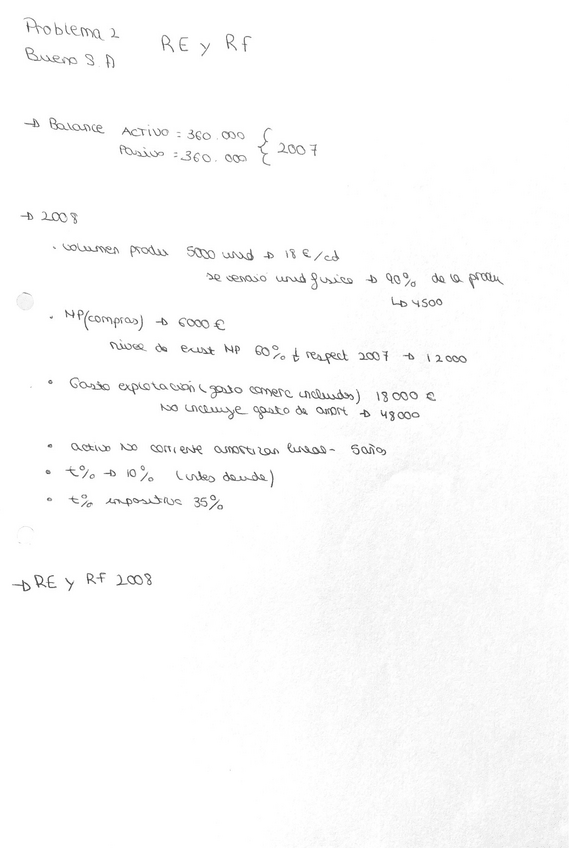 Problema 2
RE y Rf
Bueno S.A
→ Balance ACTIVO = 360.000
Pasivo = 360.000 } 2007
→ 2008
· volumen produ 5000 unid → 18 €/cd
se unid física → 90% de la produ
↳ 4500
· MP (compras) → 6000 €
nivel de exist MP 60% ↑ respect 2007 → 12000
· Gasto explotación (gasto comerc incluidos) 18000 €
NO incluye gasto de amort → 48000
· activo NO corriente amortizan lineal - 5 años
· t% → 10% (intes deuda)
· t% impositivo 35%
→ RE y RF 2008